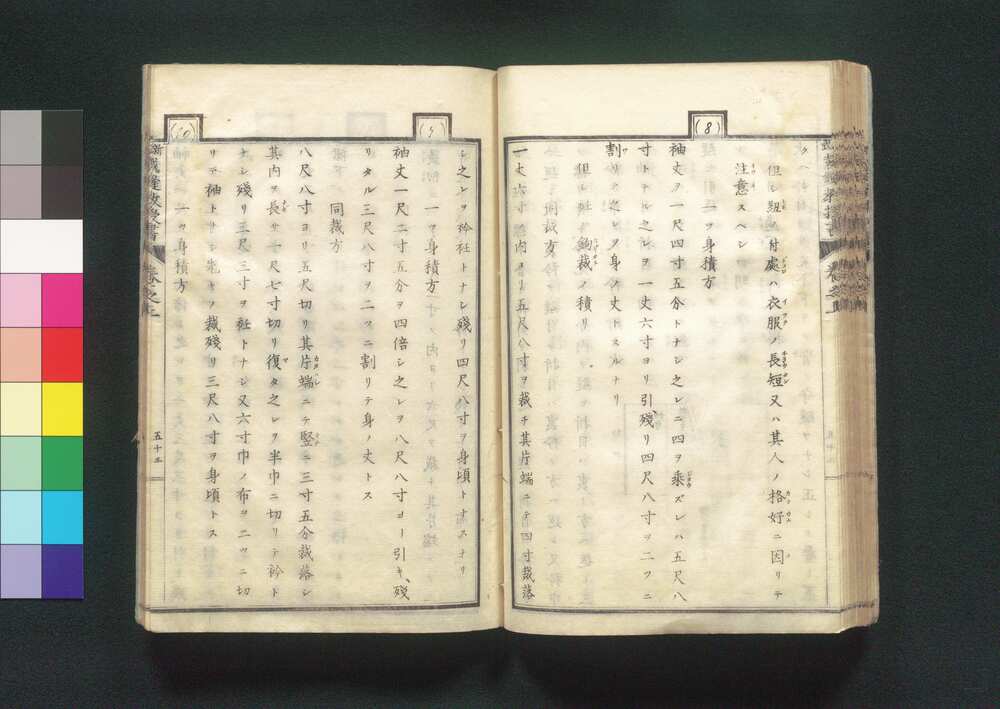 (8)
但シ紐ノ付處ハ衣服ノ長短又ハ其人ノ格好ニ因リテ
注意スベシ
一ツ身積方
袖丈ヲ一尺四寸五分トナシ之レニ四ヲ乘ズレバ五尺八
寸トナル之レヲ一丈六寸ヨリ引残リ四尺八寸ヲ二ツニ
割リ之レヲ身ノ丈トスルナリ
但シ衽ノ鉤裁ノ積リ
一丈六寸ノ内ヨリ五尺八寸ヲ裁チ其片端ニテ四寸裁落
(9)
シ之レヲ衿衽トナシ殘リ四尺八寸ヲ身頃トナスナリ
一ツ身積方
袖丈一尺二寸五分ヲ四倍シ之レヲ八尺八寸ヨリ引キ殘
リタル三尺八寸ヲ二ツニ割リテ身ノ丈トス
同裁方
八尺八寸ヨリ五尺切リ其片端ニテ竪ニ三寸五分裁落シ
其内ヲ長サ一尺七寸切リ復タ之レヲ半巾ニ切リテ衿ト
ナシ殘リ三尺三寸ヲ衽トナシ又六寸巾ノ布ヲ二ツニ切
リテ袖トナシ先キノ裁殘リ三尺八寸ヲ身頃トス
(10)
一ツ身積方
裁縫教授書 卷之二
五十三